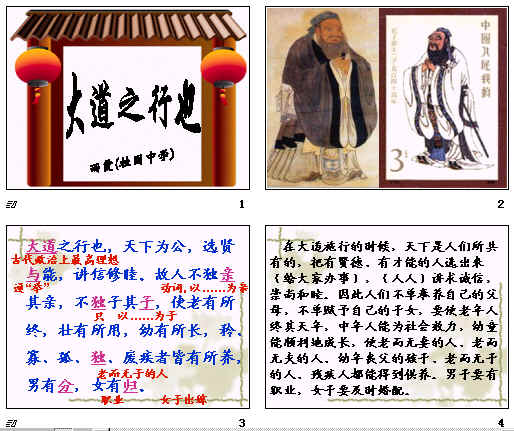 大道之行也
1
中国人民邮政
3
2
大道之行也，天下为公，选贤
古代政治上最高理想
与能，讲信修睦。故人不独亲
通“举”
动词，以……为亲
其亲，不独子其子，使老有所
只
以……为子
终，壮有所用，幼有所长，矜、
寡、孤、独、废疾者皆有所养，
老而无子的人
男有分，女有归。
职业
女子出嫁
3
在大道施行的时候，天下是人们所共
有的，把有贤德、有才能的人选出来
（给大家办事），（人人）讲求诚信，
崇尚和睦。因此人们不单奉养自己的父
母，不单赋予自己的子女，要使老年人
终其天年，中年人能为社会效力，幼童
能顺利地成长，使老而无妻的人、老而
无夫的人、幼年丧父的孩子、老而无子
的人、残疾人都能得到供养。男子要有
职业，女子要及时婚配。
4